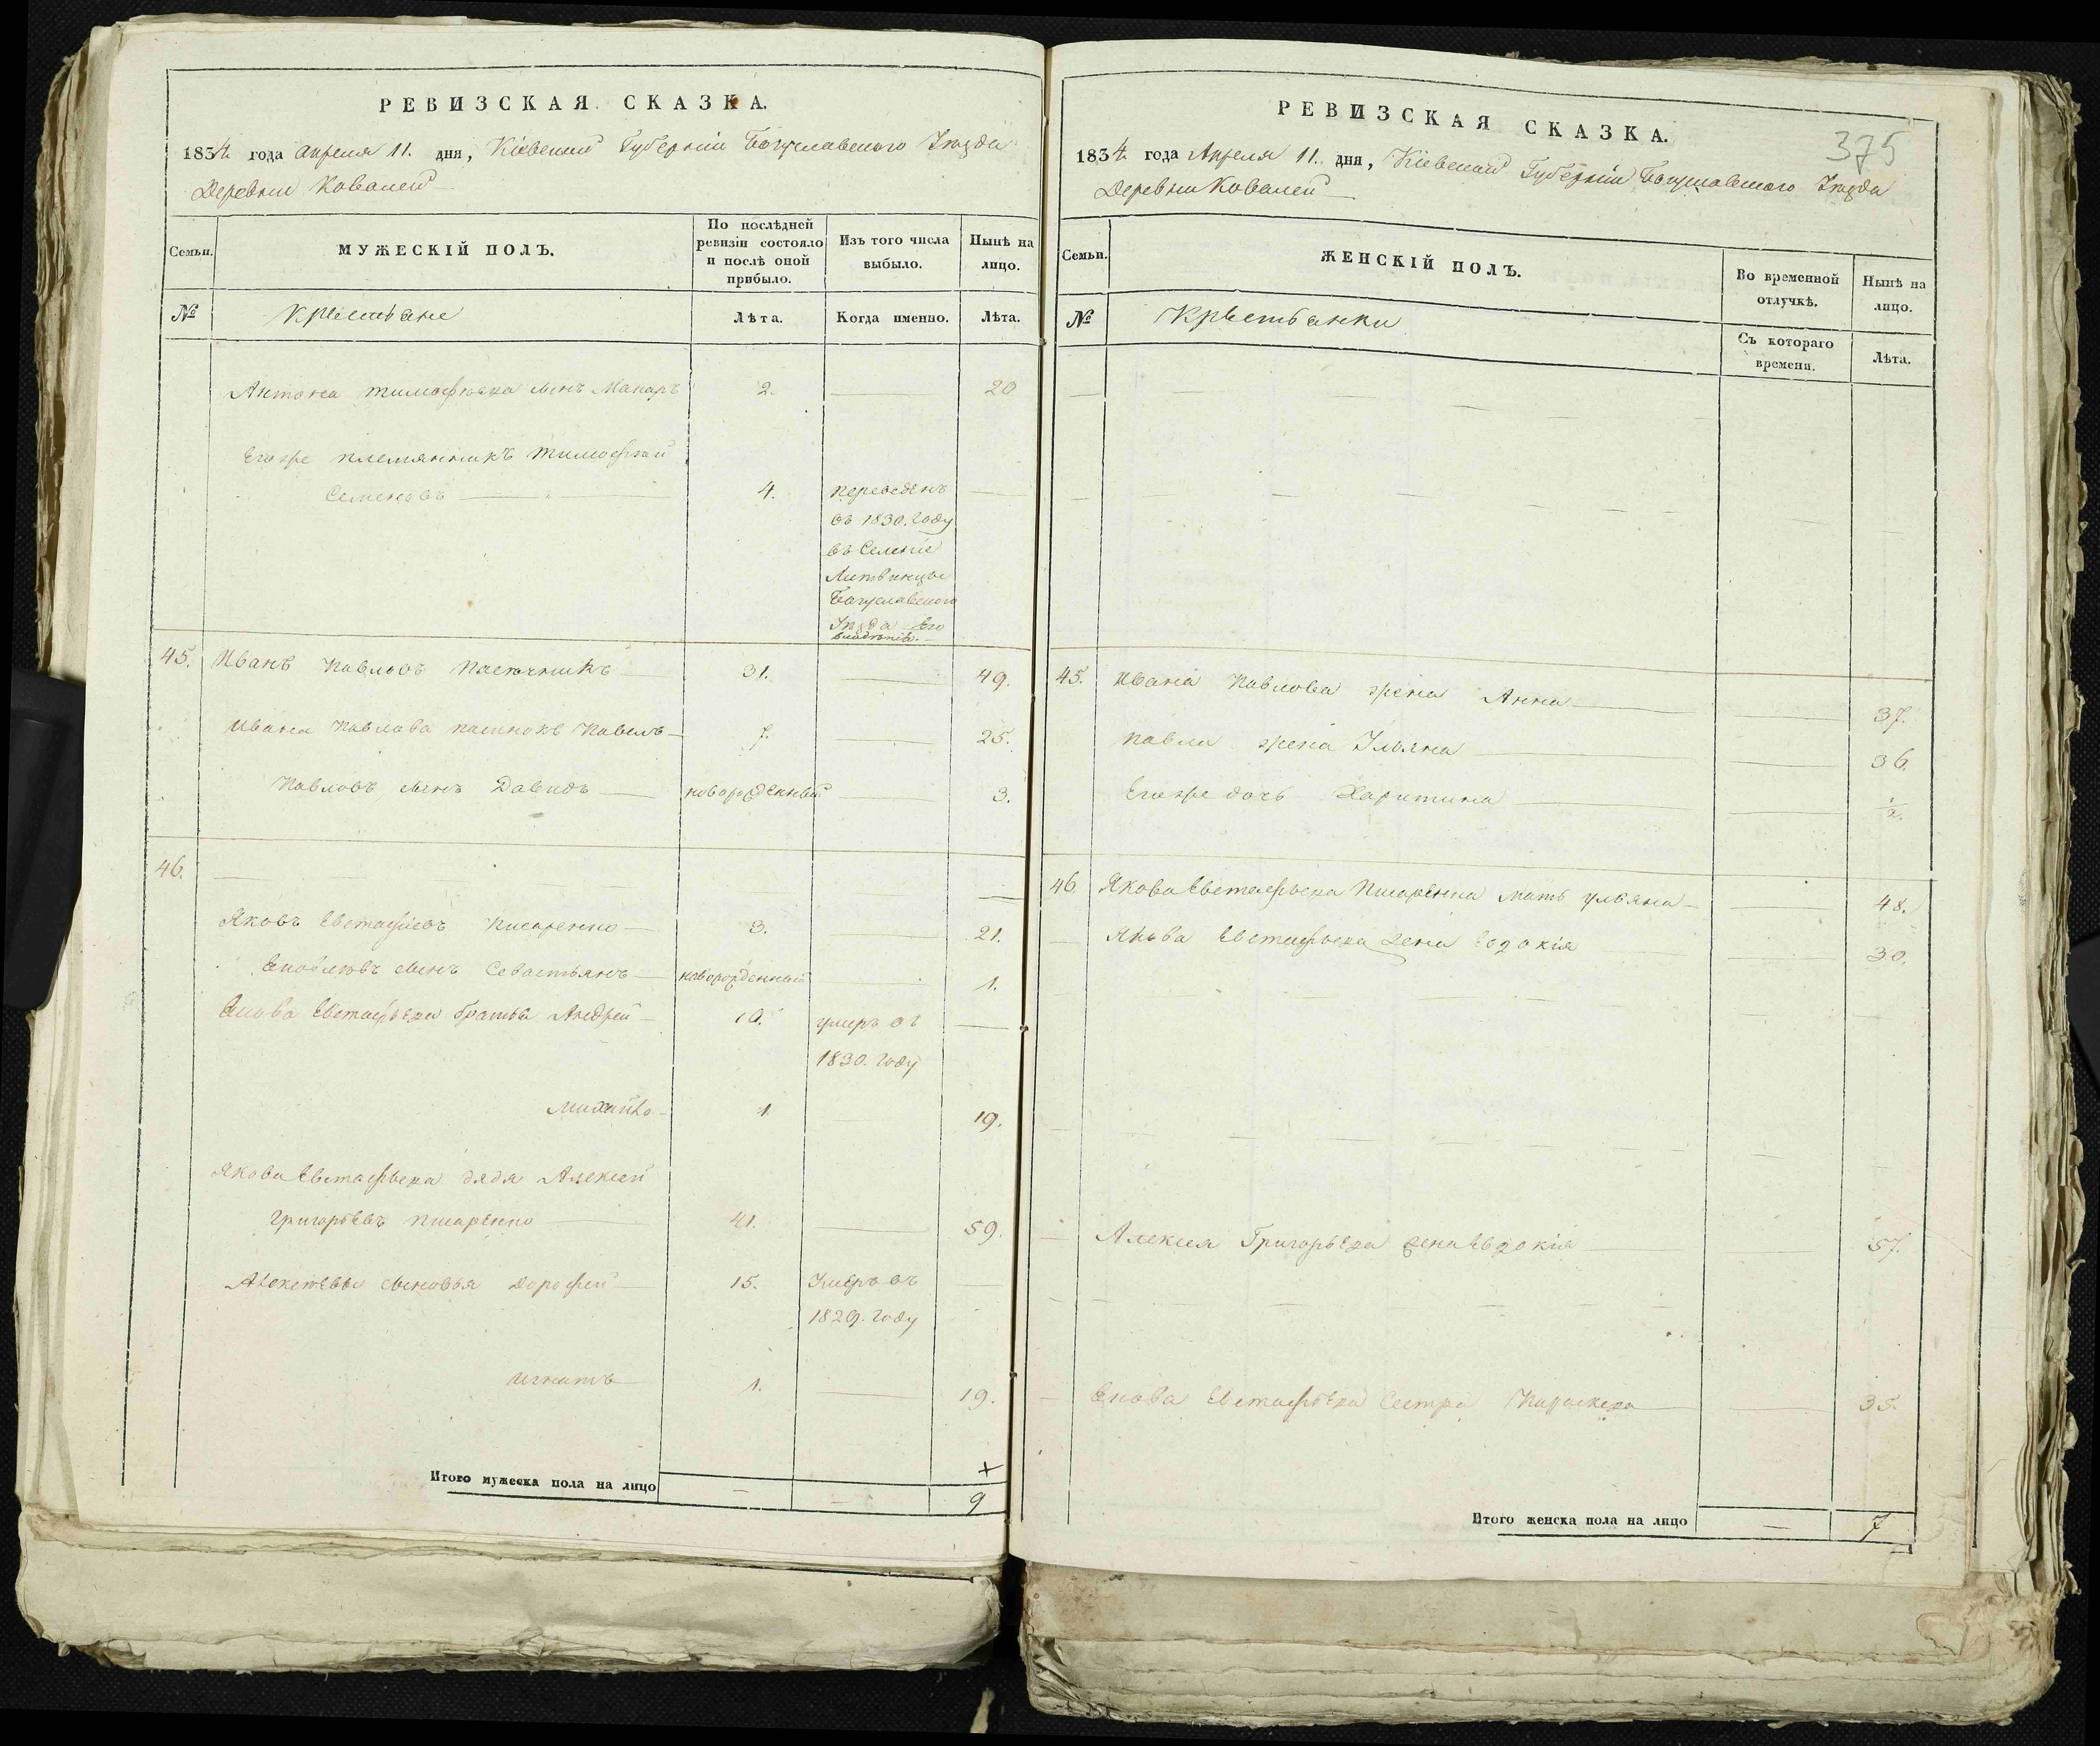 РЕВИЗСКАЯ СКАЗКА.
1834 года Апреля 11. дня, Кіевской Губерніи Богуславского Уезда
Деревни Ковалей
Семьи.
МУЖЕСКІЙ ПОЛЪ.
По послѣдней ревизіи состояло и послѣ оной прибыло.
Изъ того числа выбыло.
Нынѣ на лицо.
№
Крестьяне
Лѣта.
Когда именно.
Лѣта.
Антона Тимофѣева сынъ Макаръ 2. 20
Егоже племянникъ Тимофей
Семеновъ 4. переведенъ
въ 1830. году
въ Селеніе
Литвинцы
Богуславского
Уезда Его
владѣнія.
45. Иванъ Павловъ Пасечникъ 31. 49.
Ивана Павлова пасинокъ Павелъ 7. 25.
Павловъ сынъ Давидъ новорожденный 3.
46.
Яковъ Евстафіевъ Писаренко 3. 21.
Яковлевъ сынъ Севастьянъ новорожденный 1.
Якова Евстафьева братья Андрей 10. умеръ въ
1830. году
Михайло 1 19.
Якова Евстафьева дядя Алексей
Григорьевъ Писаренко 41. 59.
Алексеевы сыновья Дорофей 15. Умеръ въ
1829. году
Игнатъ 1. 19.
Итого мужеска пола на лицо 9
РЕВИЗСКАЯ СКАЗКА.
375
1834 года Апреля 11. дня, Кіевской Губерніи Богуславского Уезда
Деревни Ковалей
Семьи.
ЖЕНСКІЙ ПОЛЪ.
Во временной отлучкѣ.
Нынѣ на лицо.
№
Крестьянки
Съ котораго времени.
Лѣта.
45. Ивана Павлова жена Анна 37.
Павла жена Ульяна 36.
Егоже дочь Харитина 1/2.
46. Якова Евстафьева Писаренка мать Ульяна 48.
Якова Евстафьева жена Евдокія 30.
Алексея Григорьева жена Евдокія 57.
Якова Евстафьева Сестра Параскева 35.
Итого женска пола на лицо 7